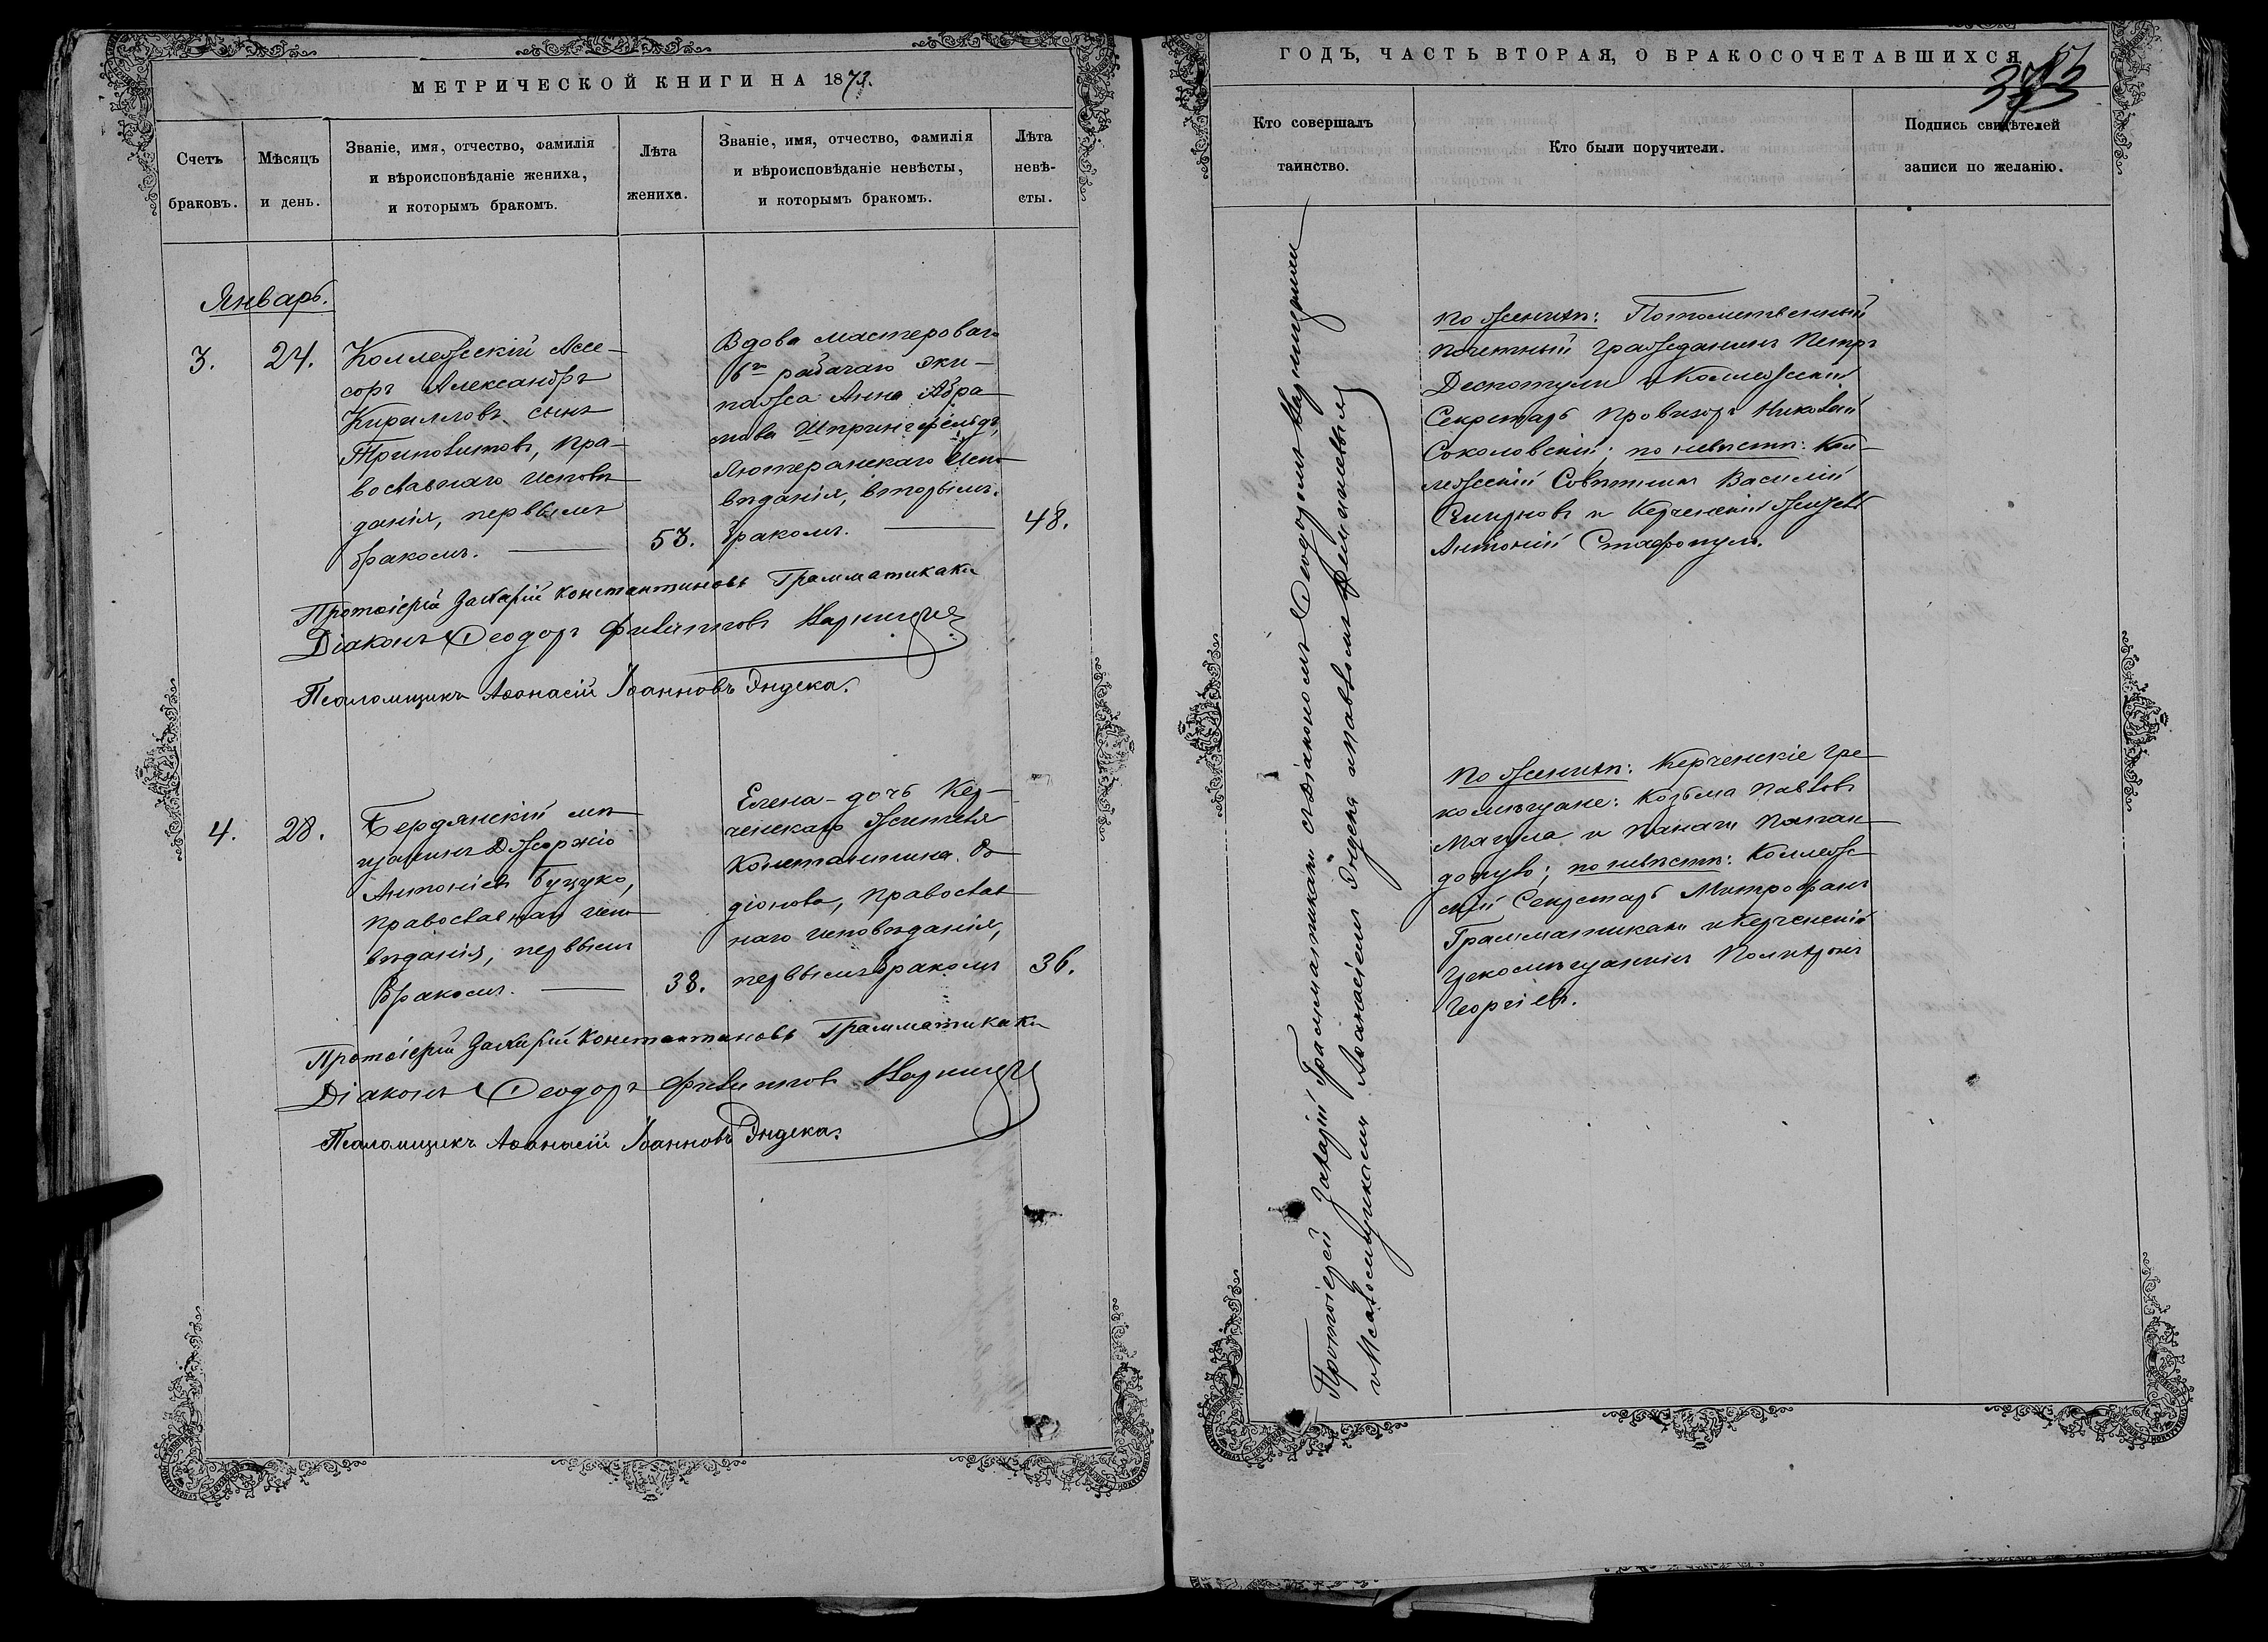 МЕТРИЧЕСКОЙ КНИГИ НА 1873.
Счетъ браковъ.
Мѣсяцъ и день.
Званіе, имя, отчество, фамилія
и вѣроисповѣданіе жениха,
и которымъ бракомъ.
Лѣта жениха.
Званіе, имя, отчество, фамилія
и вѣроисповѣданіе невѣсты,
и которымъ бракомъ.
Лѣта невѣ-
сты.
Январь.
3.
24.
Коллежскій Ассе-
соръ Александръ
Кирилловъ сынъ
Триполитовъ, пра-
вославнаго исповѣ
данія, первымъ
бракомъ.
53.
Вдова мастероваго
6го рабочаго эки-
пажа Анна Абра
мова Шпрингфельдъ,
Лютеранскаго испо
вѣданія, вторымъ
бракомъ.
48.
Протоіерей Захарій Константиновъ Грамматикаки
Діаконъ Ѳеодоръ Филипповъ
Псаломщикъ Аѳанасій Іоанновъ Эндека.
4.
28.
Бердянскій мѣ
щанинъ Джоржіо
Антоніевъ Буцуко,
православнаго испо
вѣданія, первымъ
бракомъ.
38.
Елена - дочь Кер-
ченскаго жителя
Константина
православ
наго исповѣданія,
первымъ бракомъ
36.
Протоіерей Захарій Константиновъ Грамматикаки
Діаконъ Ѳеодоръ Филипповъ
Псаломщикъ Аѳанасій Іоанновъ Эндека.
ГОДЪ, ЧАСТЬ ВТОРАЯ, О БРАКОСОЧЕТАВШИХСЯ
Кто совершалъ
таинство.
Кто были поручители.
Подпись свидѣтелей
записи по желанію.
Протоіерей Захарій Грамматикаки съ Діакономъ Ѳеодоромъ
и Псаломщиками Аѳанасіемъ Эндека и Павломъ
по женихѣ: Потомственный
Почетный гражданинъ Петръ
Деспотули и Коллежскій
Секретарь Провизоръ Николай
Соколовскій; по невѣстѣ: Кол-
лежскій Совѣтникъ Василій
Смирновъ и Керченскій житель
Антоній Ставропуло.
По женихѣ: Керченскіе гре
комѣщане: Козьма Павловъ
Магула и Панаги Папан
допуло; по невѣстѣ: Коллеж
скій Секретарь Митрофанъ
Грамматикаки и Керченскій
грекомѣщанинъ Поликронъ
Георгіевъ.